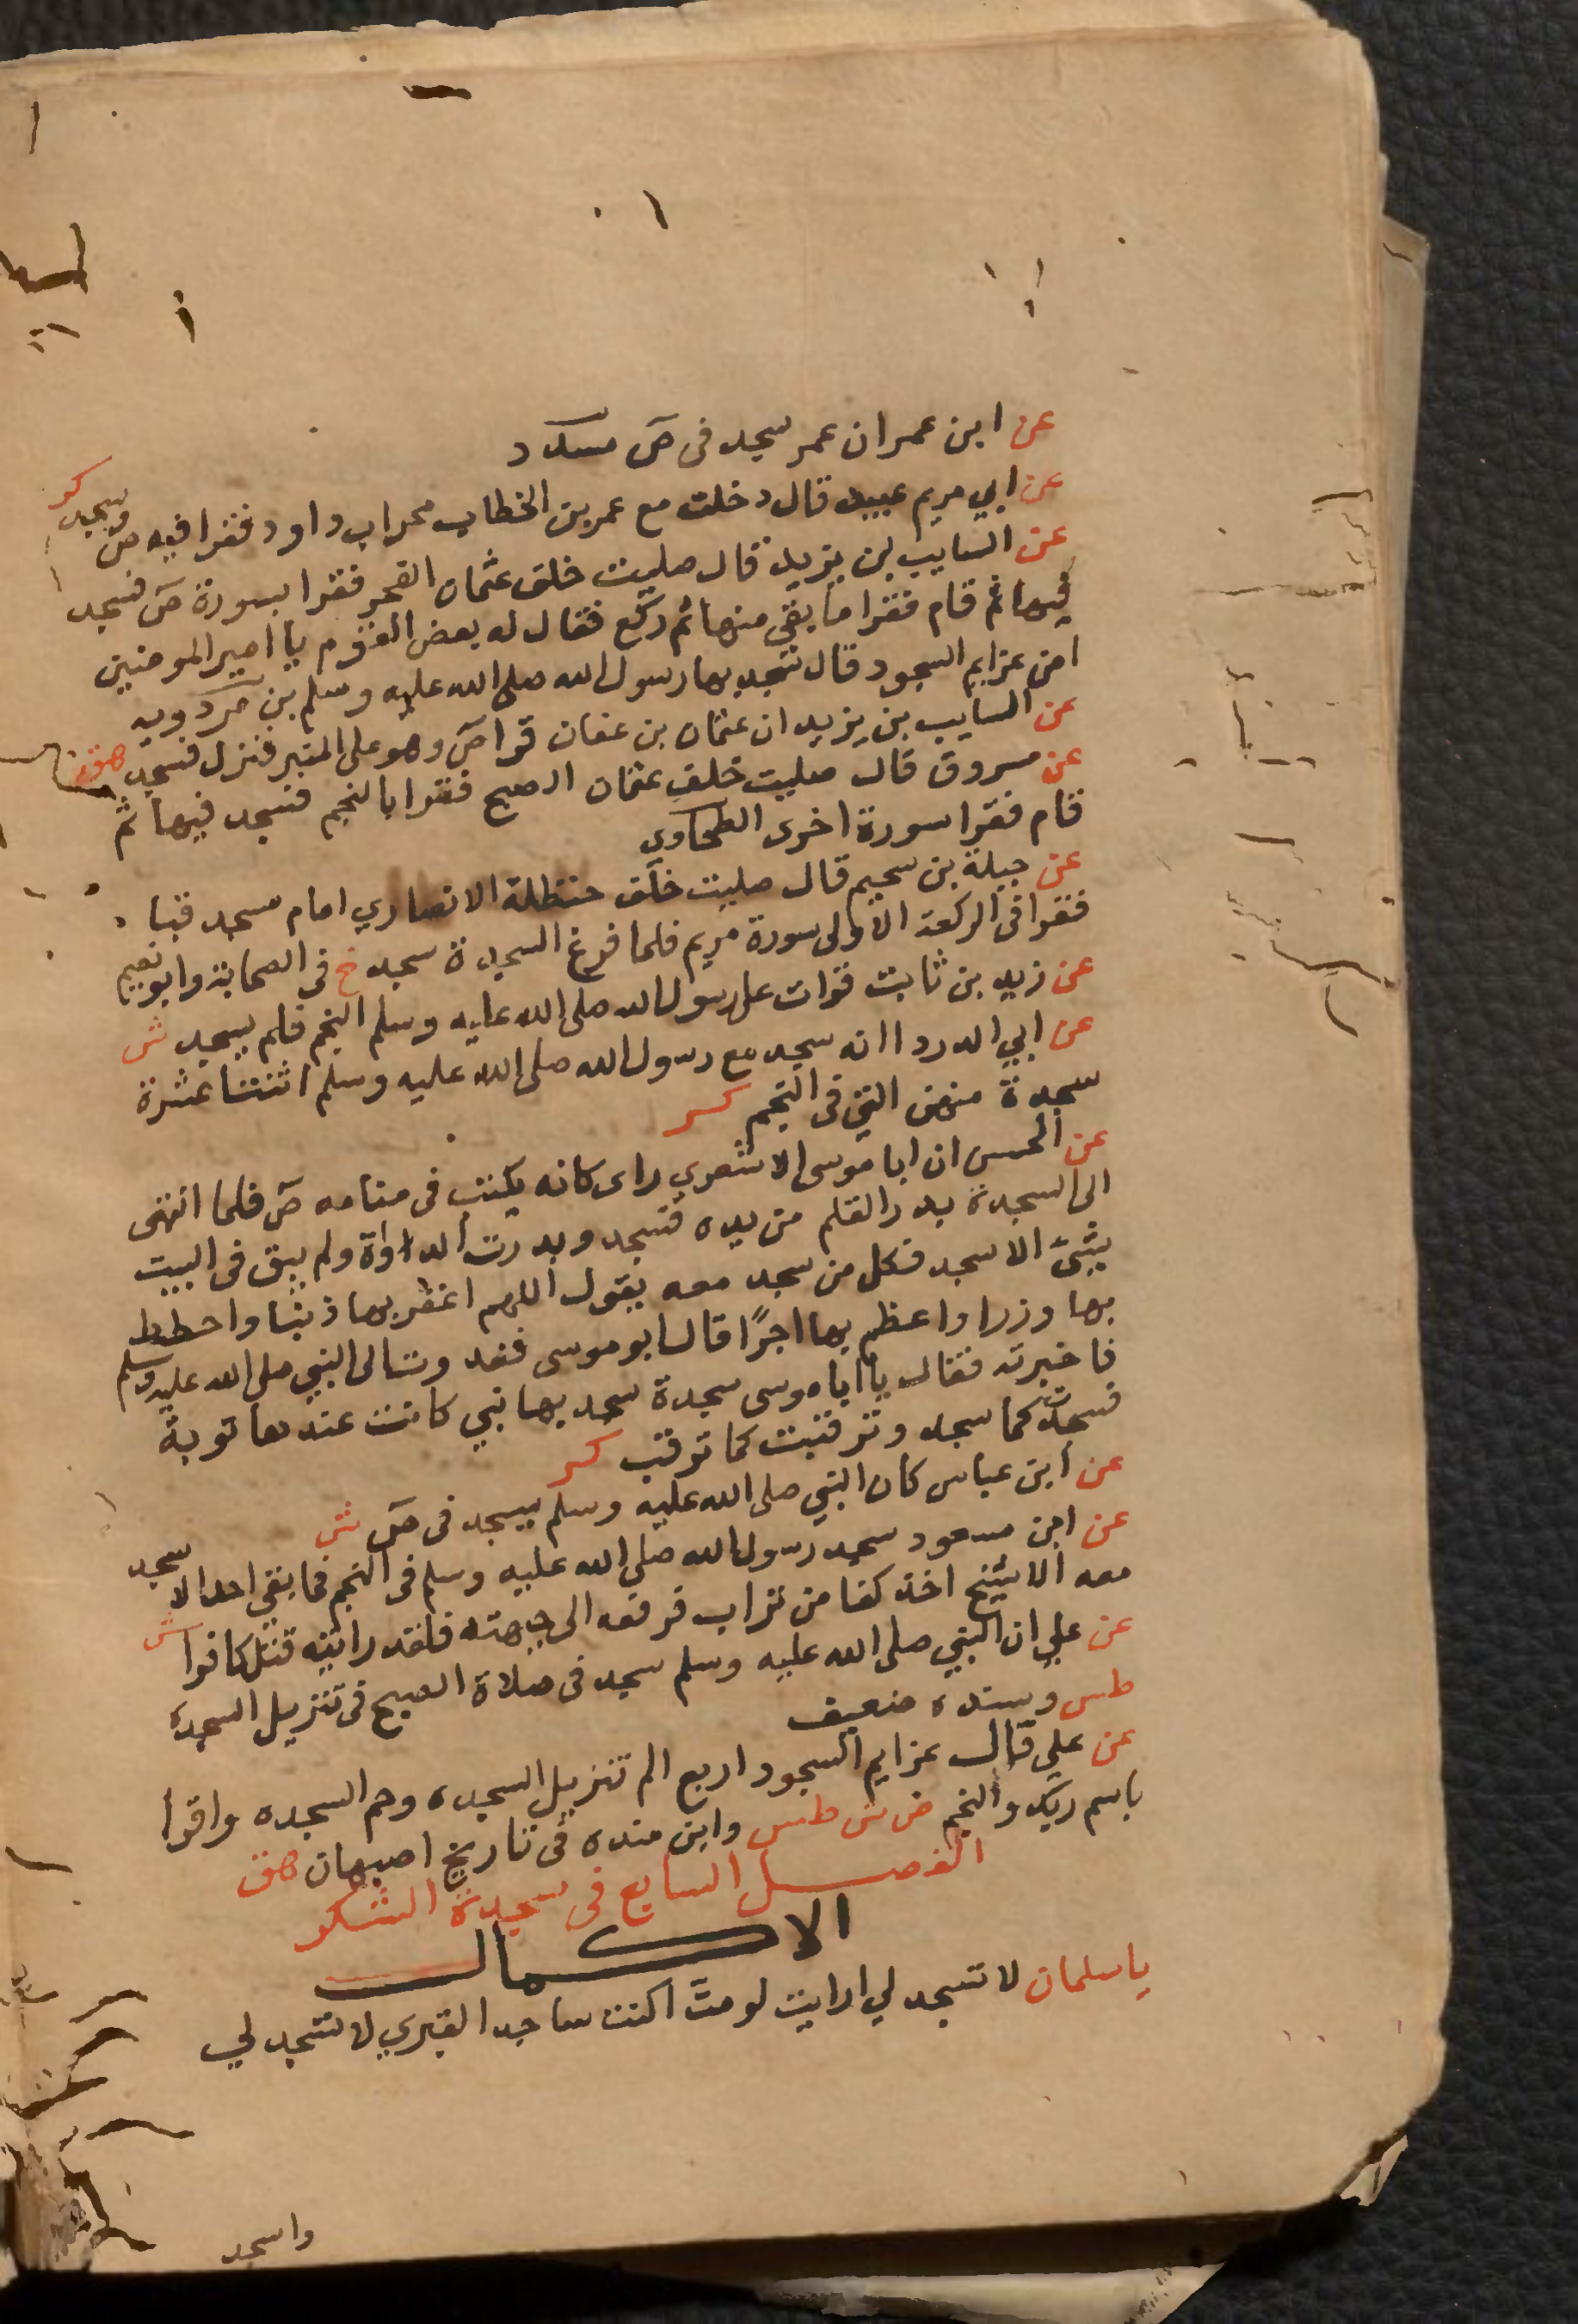 عن ابن عمران عمر سجد فى ص مسدد
عن ابي مريم عبيد قال دخلت مع عمر بن الخطاب محراب داود فقرا فيه ص وسجد كر
عن السايب بن يزيد قال صليت خلف عثمان الفجر فقرا بسورة ص فسجد
فيها ثم قام فقرا ما بقي منها ثم ركع فقال له بعض القوم يا امير المومنين
امن عزايم السجود قال سجد بها رسول الله صلى الله عليه وسلم بن مردويه
عن السايب بن يزيد ان عثمان بن عفان قرا ص وهو على المنبر فنزل فسجد هق
عن مسروق قال صليت خلف عثمان الصبح فقرا بالنجم فسجد فيها ثم
قام فقرا سورة اخرى الطحاوى
عن جبلة بن سحيم قال صليت خلف حنظلة الانصاري امام مسجد قباء
فقرا فى الركعة الاولى سورة مريم فلما فرغ السجدة سجد خ فى الصحابة وابو نعيم
عن زيد بن ثابت قرات على رسول الله صلى الله عليه وسلم النجم فلم يسجد ش
عن ابي الدردا انه سجد مع رسول الله صلى الله عليه وسلم اثنتا عشرة
سجدة منهن التي فى النجم كر
عن الحسن ان ابا موسى الاشعري راى كانه يكتب فى منامه ص فلما انتهى
الى السجدة بدر القلم من يده فسجد وبدرت الداواة ولم يبق فى البيت
شئ الا سجد فكل من سجد معه يقول اللهم اغفر بها ذنبا واحطط
بها وزرا واعظم بها اجرًا قال ابو موسى فغدوت الى النبي صلى الله عليه وسلم
فاخبرته فقال يا ابا موسى سجدة سجد بها نبي كانت عندها توبة
فسجدت كما سجد وترقبت كما ترقب كر
عن ابن عباس كان النبي صلى الله عليه وسلم يسجد فى ص ش
عن ابن مسعود سجد رسول الله صلى الله عليه وسلم فى النجم فما بقي احد الا سجد
معه الا شيخ اخذ كفا من تراب فرفعه الى جبهته فلقد رايته قتل كافرا ش
عن علي ان النبي صلى الله عليه وسلم سجد فى صلاة الصبح فى تنزيل السجدة
طس وسنده ضعيف
عن علي قال عزايم السجود اربع الم تنزيل السجده وحم السجده واقرا
باسم ربك والنجم ض ش طس وابن منده فى تاريخ اصبهان هق
الفصل السابع فى سجدة الشكر
الاكمال
يا سلمان لا تسجد لي ارايت لو مت اكنت ساجدا لقبري لا تسجد لي
واسجد